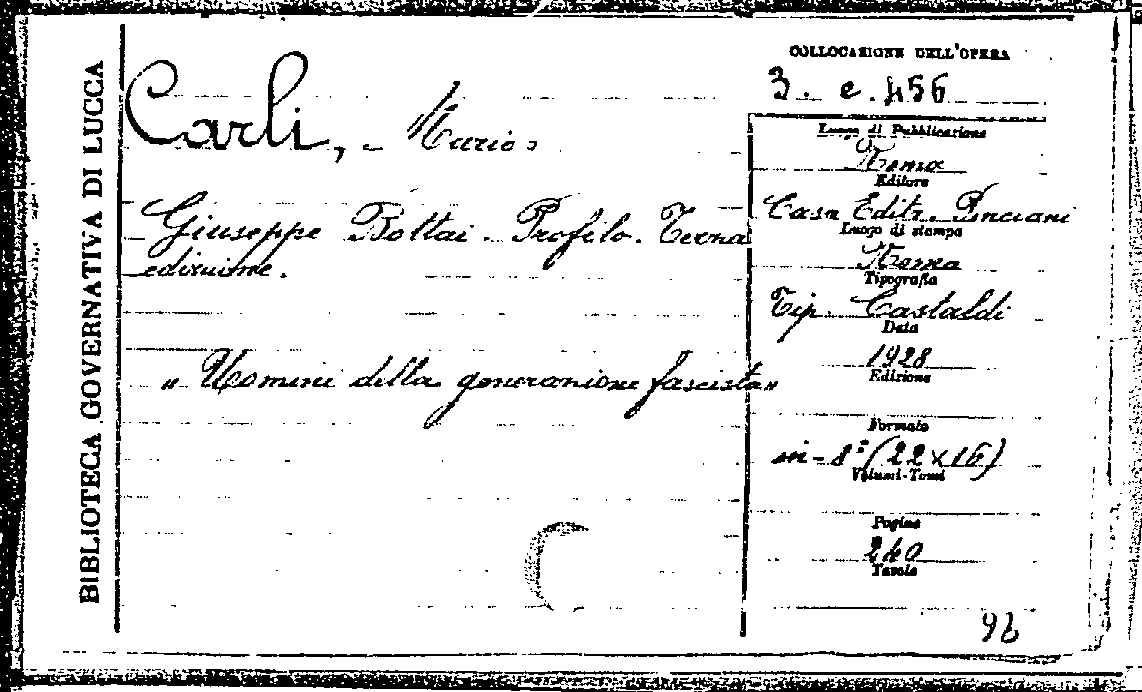 BIBLIOTECA GOVERNATIVA DI LUCCA
Carli, - Mario
Giuseppe Bottai - Profilo. Terza
edizione.
" Uomini della generazione fascista "
COLLOCAZIONE DELL'OPERA
3. e. 456
Luogo di Pubblicazione
Roma
Editore
Casa Editr. Pinciana
Luogo di stampa
Roma
Tipografia
Tip. Castaldi
Data
1928
Edizione
Formato
in-8° (22x16)
Volumi-Tomi
Pagine
240
Tavole
96